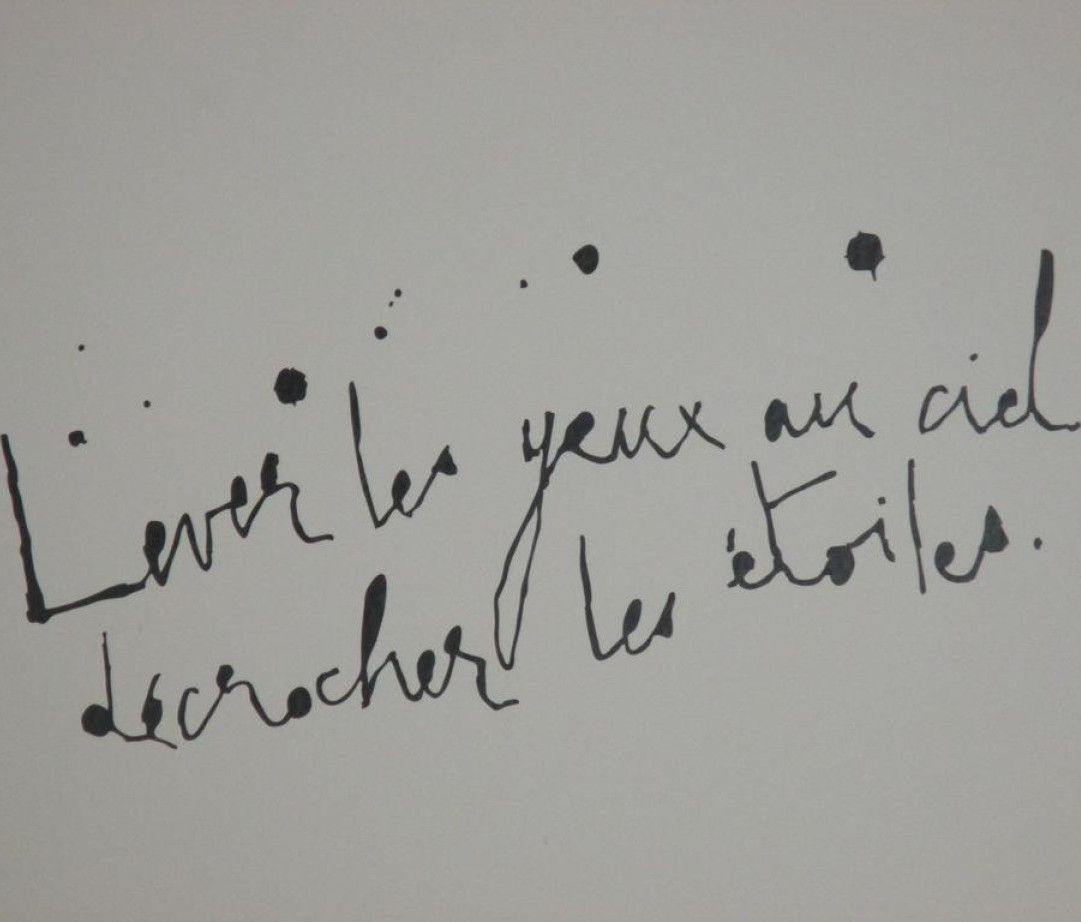 Lever les yeux au ciel
décrocher les étoiles.